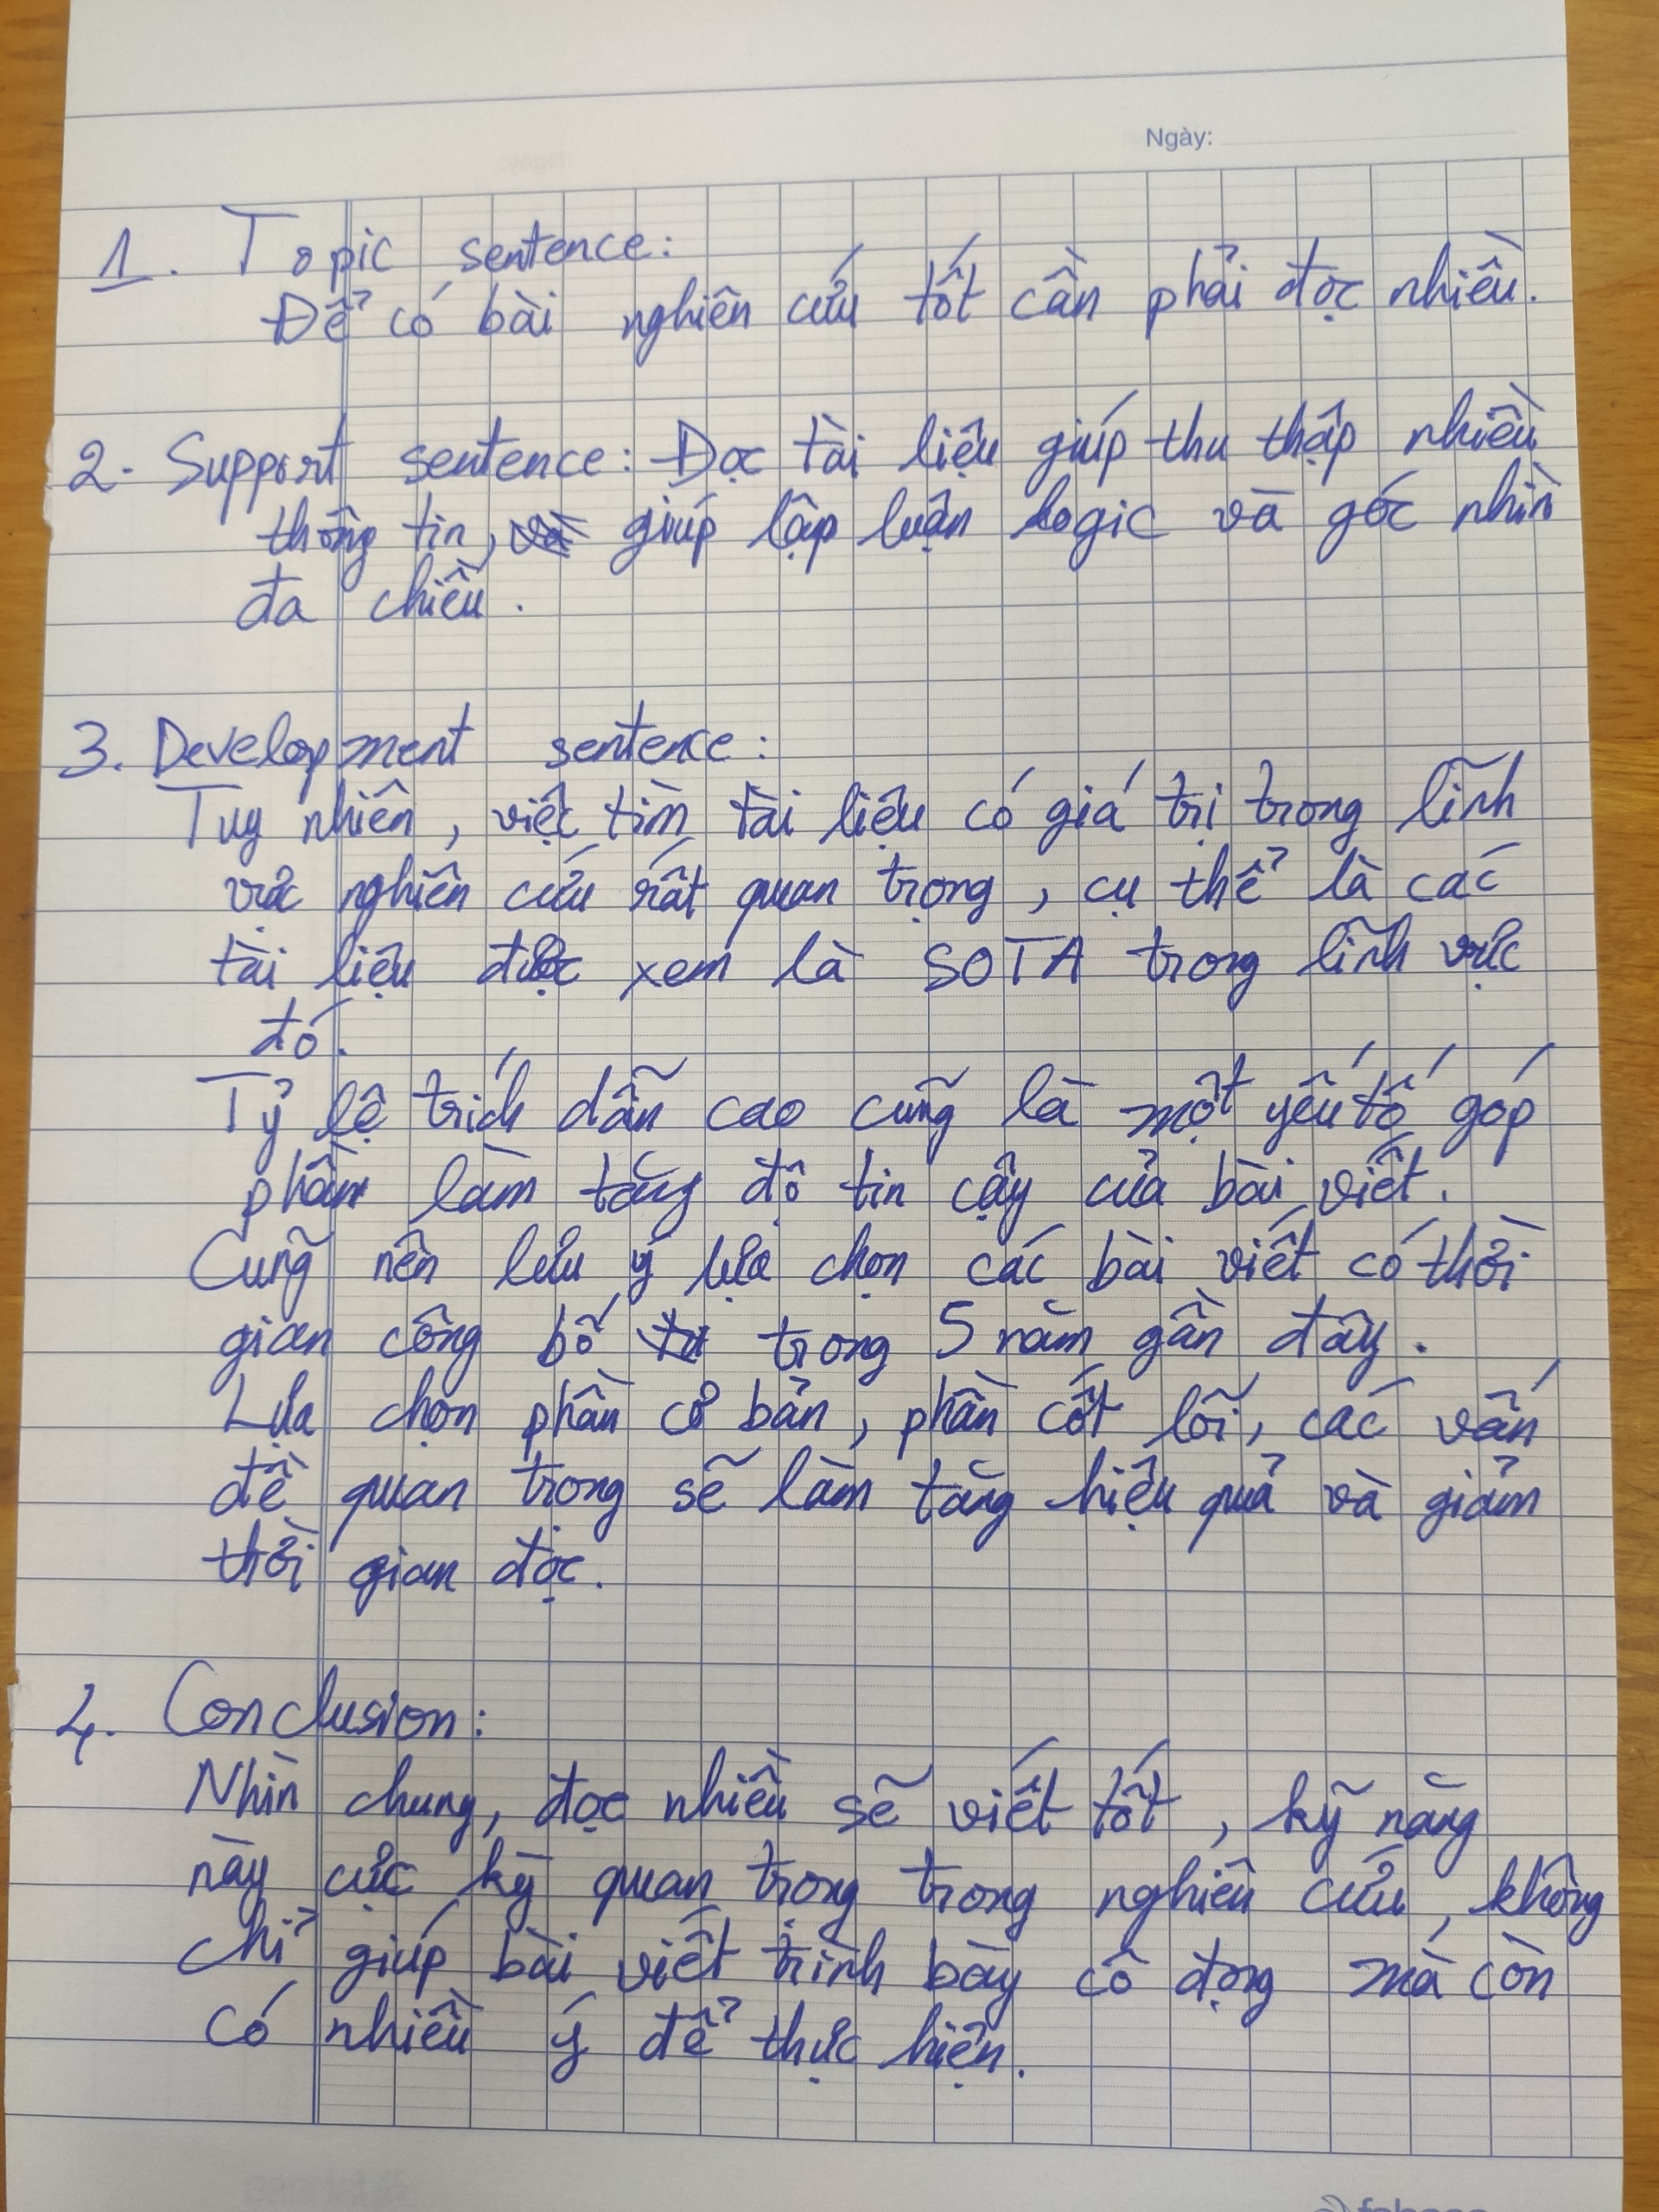 Ngày:
1. Topic sentence:
Để có bài nghiên cứu tốt cần phải đọc nhiều.
2. Support sentence: Đọc tài liệu giúp thu thập nhiều
thông tin, giúp lập luận logic và góc nhìn
đa chiều.
3. Development sentence:
Tuy nhiên, việc tìm tài liệu có giá trị trong lĩnh
vực nghiên cứu rất quan trọng, cụ thể là các
tài liệu được xem là SOTA trong lĩnh vực
đó.
Tỷ lệ trích dẫn cao cũng là một yếu tố góp
phần làm tăng độ tin cậy của bài viết.
Cũng nên lưu ý lựa chọn các bài viết có thời
gian công bố trong 5 năm gần đây.
Lựa chọn phần cơ bản, phần cốt lõi, các vấn
đề quan trọng sẽ làm tăng hiệu quả và giảm
thời gian đọc.
4. Conclusion:
Nhìn chung, đọc nhiều sẽ viết tốt, kỹ năng
này cực kỳ quan trọng trong nghiên cứu, không
chỉ giúp bài viết trình bày cô đọng mà còn
có nhiều ý để thực hiện.